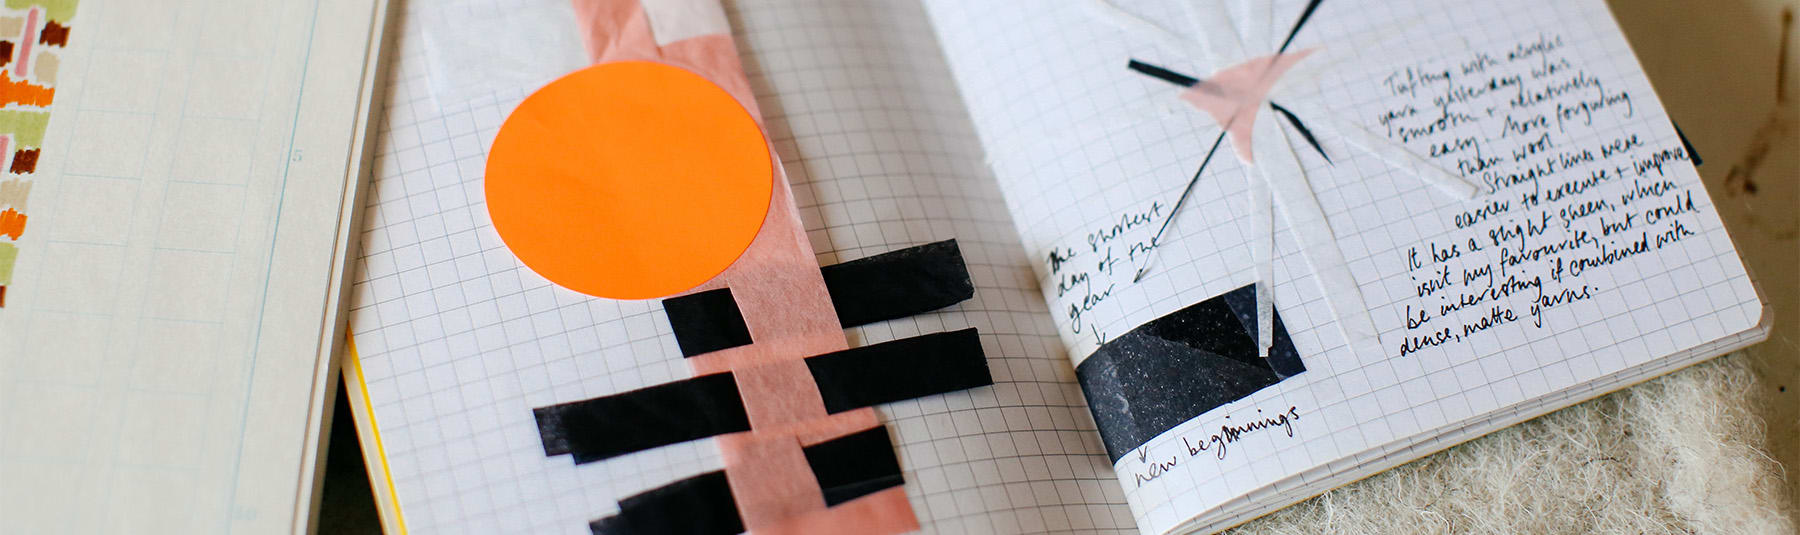 5
the shortest
day of the
year
new beginnings
Tufting with acrylic
yarn yesterday was
smooth + relatively
easy. More forgiving
than wool.
Straight lines were
easier to execute + improve
It has a slight sheen, which
isn't my favourite, but could
be interesting if combined with
dense, matte yarns.